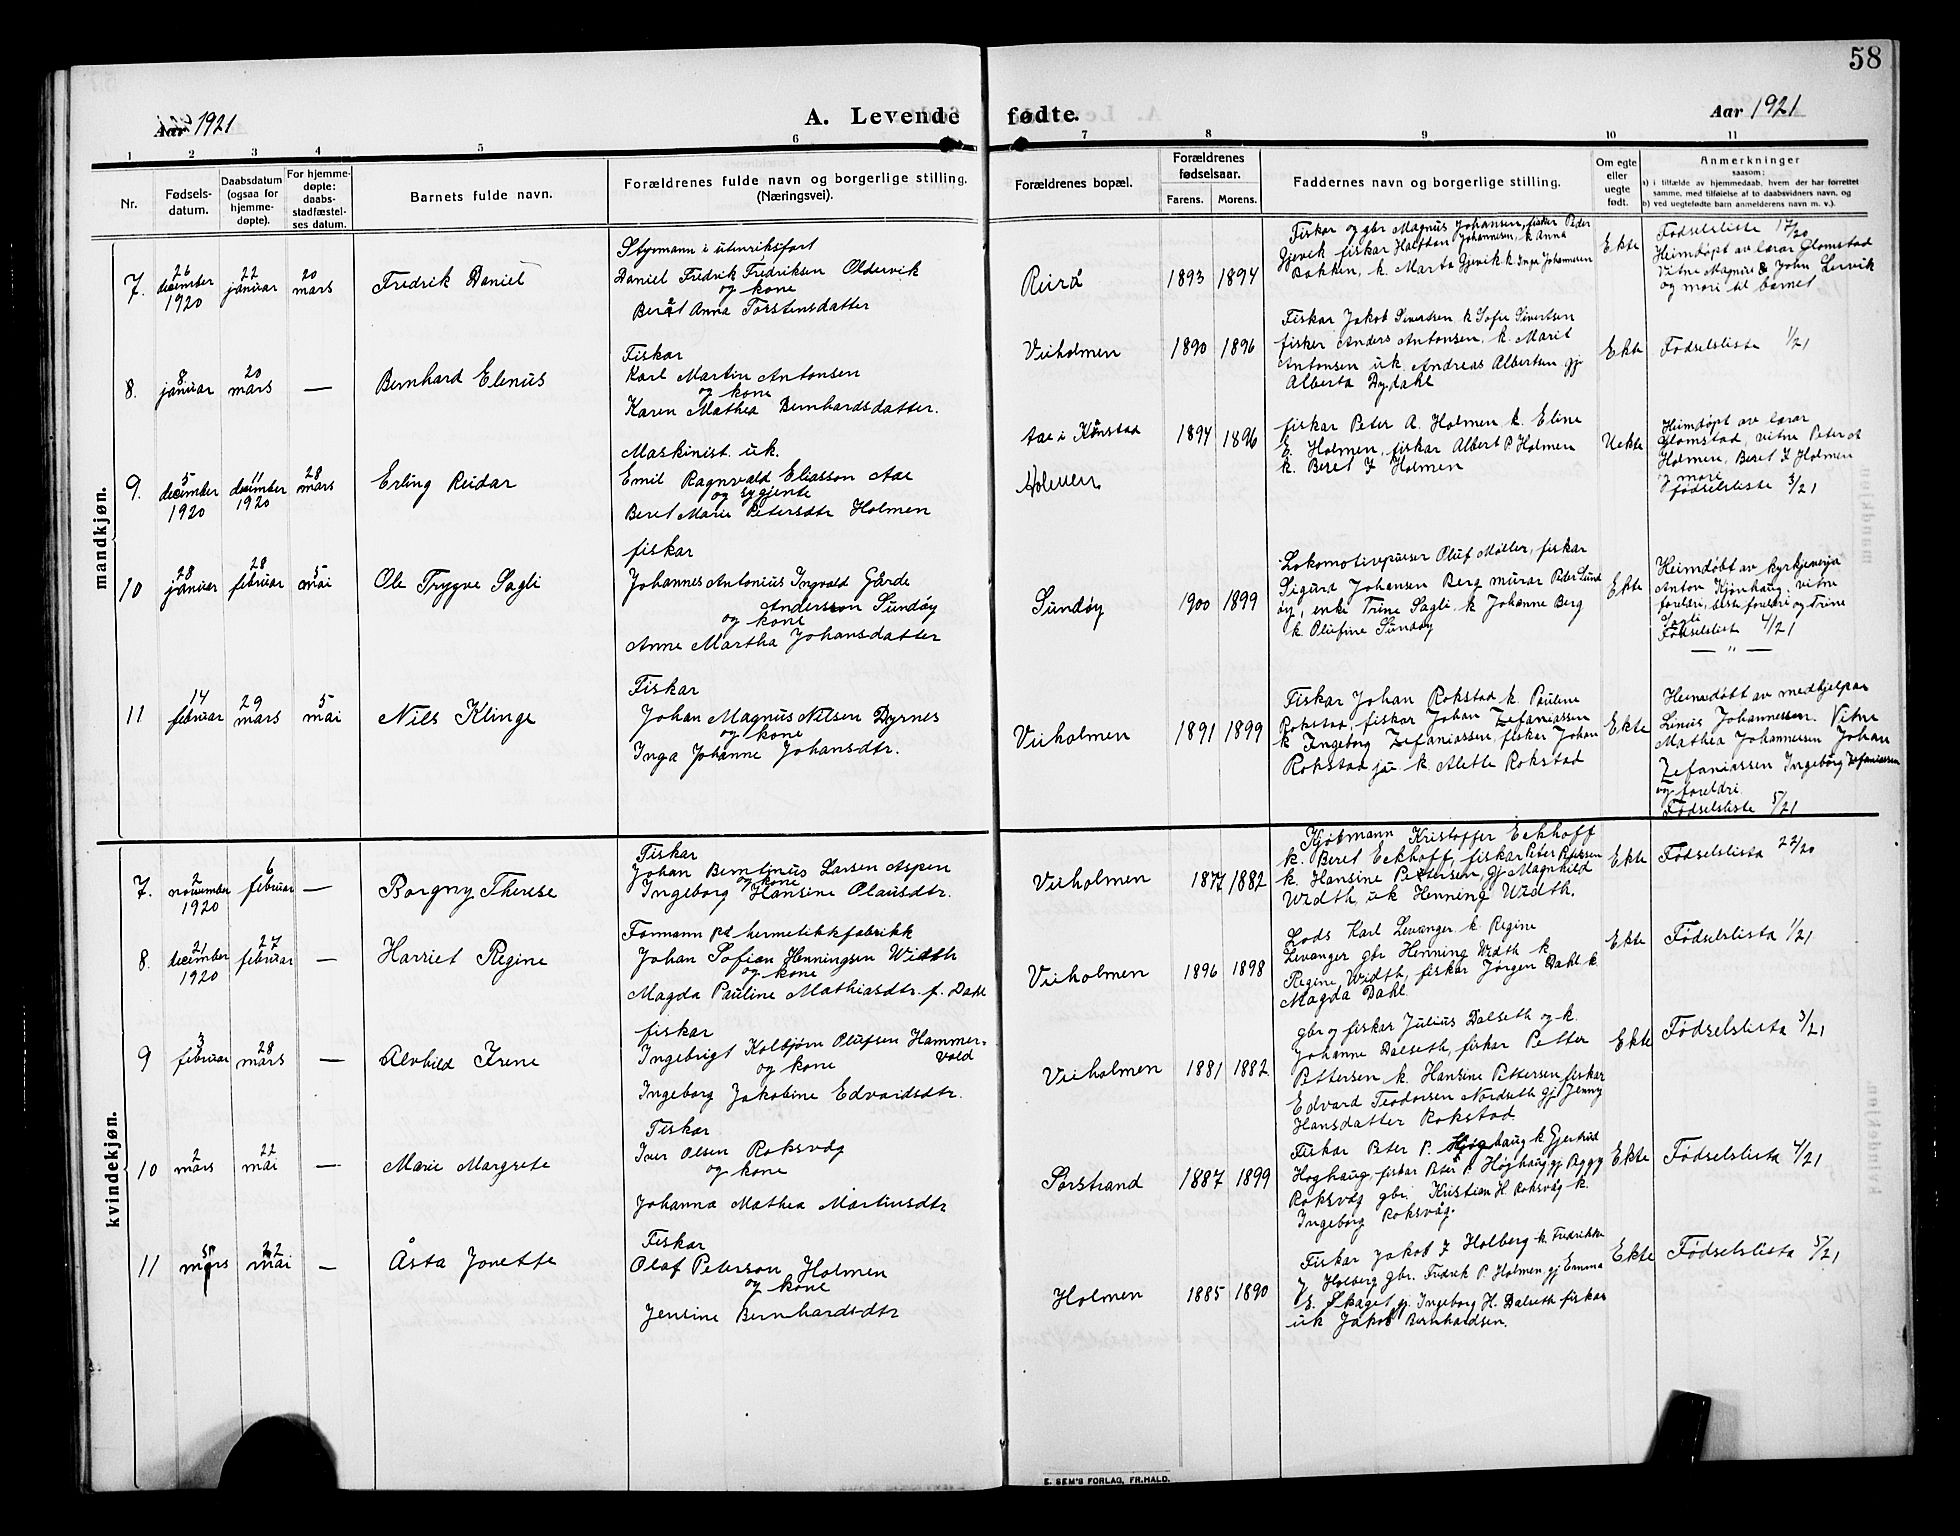 58
Aar 1921
A. Levende fødte.
Aar 1921
1 2 3 4 5 6 7 8 9 10 11
Nr.
Fødsels-
datum.
Daabsdatum
(ogsaa for
hjemme-
døpte).
For hjemme-
døpte:
daabs-
stadfæstel-
ses datum.
Barnets fulde navn.
Forældrenes fulde navn og borgerlige stilling.
(Næringsvei).
Forældrenes bopæl.
Forældrenes
fødselsaar.
Farens. Morens.
Faddernes navn og borgerlige stilling.
Om egte
eller
uegte
født.
Anmerkninger
saasom:
a) i tilfælde av hjemmedaab, hvem der har forrettet
samme, med tilføielse af to daabsvidners navn, og
b) ved uegtefødte barn anmelderens navn m. v.).
mandkjøn.
7.
26
december
1920
22
januar
20
mars
Fredrik Daniel
Styrmann i utenriksfart
Daniel Fredrik Fredriksen Oldervik
og kone
Beret Anna Torstensdatter
Reirå
1893 1894
Fiskar og gbr Magnus Johansen, fisker Peder
Gjevik fiskar Halftan Johannesen, k. Anna
Bakken, k. Marta Gjevik k. Inga Johannesen
Ekte
Fødselsliste 17/20
Heimdøpt av lærar Glomstad
Vitne Magnus & John Lervik
og mori til barnet
8.
8
januar
20
mars
—
Bernhard Elenus
Fiskar
Karl Martin Antonsen
og kone
Karen Mathea Bernhardsdatter.
Veiholmen
1890 1896
Fiskar Jakob Sivertsen k Sofie Sivertsen
fisker Anders Antonsen, k. Marit
Antonsen uk. Andreas Albertsen gj
Alberta Dyrdahl
Ekte
Fødselsliste 1/21
9.
5
december
1920
11
december
1920
28
mars
Erling Reidar
Maskinist. uk.
Emil Ragnvald Eliasson Aae
og sygjente
Beret Marie Petersdtr Holmen
Aae i Kånstad
Holmen
1894 1896
fiskar Peter A. Holmen k. Eline
E. Holmen, fiskar Albert P. Holmen
k. Beret J Holmen
Uekte
Heimdøpt av lærar
Glomstad, vitne Peter A
Holmen, Beret J Holmen
og mori
fødselsliste 3/21
10
28
januar
28
februar
5
mai
Ole Trygve Sagli
fiskar
Johannes Antonius Ingvald Gårde
Anderssen Sundøy
og kone
Anne Martha Johansdatter
Sundøy
1900 1899
Lokomotivpusser Oluf Møller, fiskar
Sigurd Johansen Berg murar Peder Sund
øy, enke Trine Sagli, k Johanne Berg
k. Olufine Sundøy
Ekte
Heimdøbt av kyrkjeverja
Anton Kjønhaug, vitne
foreldri, besteforeldri og Trine
Sagli
Fødselslist 4/21
— " —
11
14
februar
29
mars
5
mai
Nils Klinge
Fiskar
Johan Magnus Nilsen Dyrnes
og kone
Inga Johanne Johansdtr.
Veiholmen
1891 1899
Fiskar Johan Rokstad k. Pauline
Rokstad, fiskar Johan Zefaniassen
k Ingeborg Zefaniassen, fiskar Johan
Rokstad ju k. Alette Rokstad
Ekte
Heimedøbt av medhjelpar
Linus Johannessen. Vitne
Mathea Johannessen Johan
Zefaniassen Ingeborg Zefaniassen
og foreldri
Fødselsliste 5/21
kvindekjøn.
7.
2
november
1920
6
februar
—
Borgny Therese
Fiskar
Johan Berntinus Larsen Aspen
og kone
Ingeborg Hansine Olausdtr.
Veiholmen
1877 1882
Kjøbmann Kristoffer Eckhoff
k. Beret Eckhoff, fiskar Peter Petersen
k. Hansine Pettersen, gj Magnhild
Width, uk Henning Width.
Ekte
Fødselslista 22/20
8.
21
december
1920
27
februar
—
Harriet Regine
Formann på hermetikkfabrikk
Johan Sofian Henningsen Width
og kone
Magda Pauline Mathiasdtr. f. Dahl
Veiholmen
1896 1898
Lods Karl Levanger k. Regine
Levanger gbr Henning Width k.
Regine Width, fiskar Jørgen Dahl k.
Magda Dahl
Ekte
Fødselslista 1/21
9
3
februar
28
mars
—
Alvhild Irene
fiskar
Ingebrigt Kolbjørn Olufsen Hammer-
vold
og kone
Ingeborg Jakobine Edvardsdtr.
Veiholmen
1881 1882
gbr og fiskar Julius Dalseth og k.
Johanne Dalseth, fiskar Petter
Pettersen k. Hansine Pettersen fiskar
Edvard Teodorsen Nordseth gj Jenny
Hansdatter Rokstad
Ekte
Fødselslista 3/21
10
2
mars
22
mai
—
Marie Margrete
Fiskar
Iver Olsen Roksvåg
og kone
Johanna Mathea Martinsdtr
Sørstrand
1887 1899
Fiskar Peter P. Høghaug k Gjertrud
Høghaug fiskar Peter P. Høghaug gj Peggy
Roksvåg gbr. Kristian H. Roksvåg k.
Ingeborg Roksvåg.
Ekte
Fødselslista 4/21
11
5
mars
22
mai
—
Åsta Jonette
Fiskar
Olaf Peterson Holmen
og kone
Jensine Bernhardsdtr
Holmen
1885 1890
Fiskar Jakob J Holberg k. Fredrikke
J Holberg gbr. Fredrik P. Holmen, gj Emma
E. Skaget gj. Ingeborg H. Dalseth fiskar
uk Jakob Bernhardsen.
Ekte
Fødselslista 5/21
E. SEM'S FORLAG, FR.HALD.